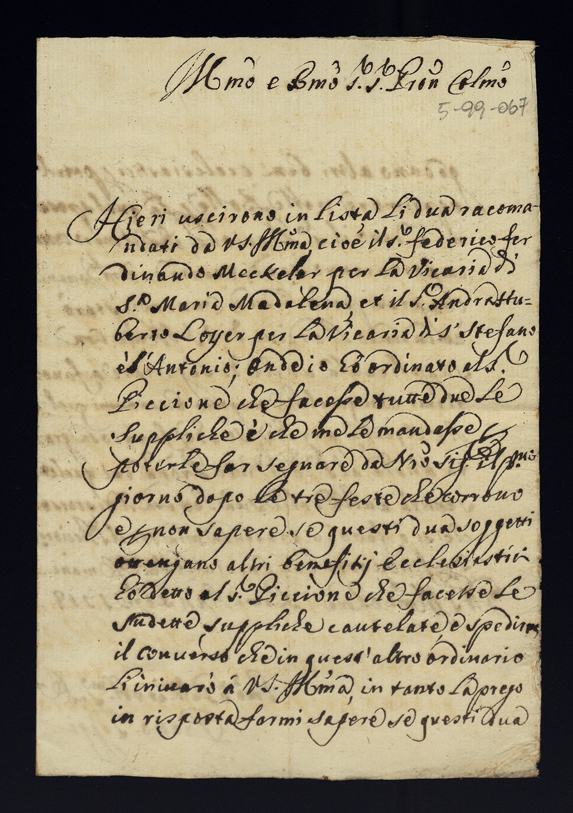 Illmõ e Rmõ S.r S.r Prõn Colmõ
5-99-067
Hieri uscirono in lista li dua racoma-
ndati da VS. Illma, cioé il S.r federico fer
dinando Meckeler per la Vicaria di
S.ta Maria Madalena, et il S.r Andrea Hu-
berto Loyer per la Vicaria di S. Stefano
é S. Antonio; Onde io hò ordinato al S.r
Piccione che facesse tutte due le
suppliche é che me le mandasse
poterle far segnare da Nrõ Sig.re il pmo
giorno dopo le tre feste che corrono
e non sapere se questi dua soggetti
ottengano altri benefitij Ecclesiastici
hò detto al S.r Piccione che facesse le
sudette suppliche cautelate, é spedir
il converso che in quest'altro ordinario
l'inviarò á VS. Illma, in tanto la prego
in risposta farmi sapere se questi dua